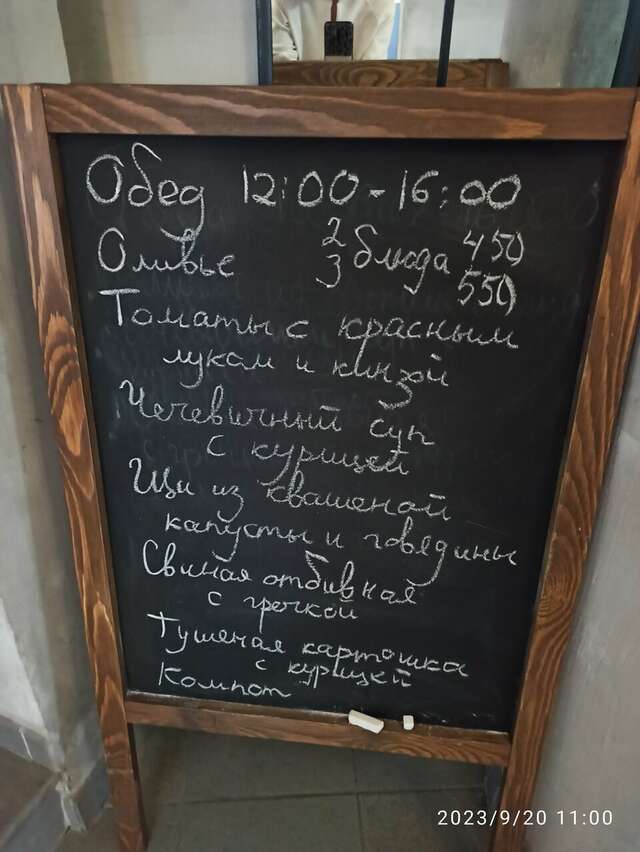 Обед 12:00-16:00
Оливье 2 блюда 450
3 550
Томаты с красным
луком и кинзой
Чечевичный суп
с курицей
Щи из квашеной
капусты и говядины
Свиная отбивная
с гречкой
Тушеная картошка
с курицей
Компот
2023/9/20 11:00